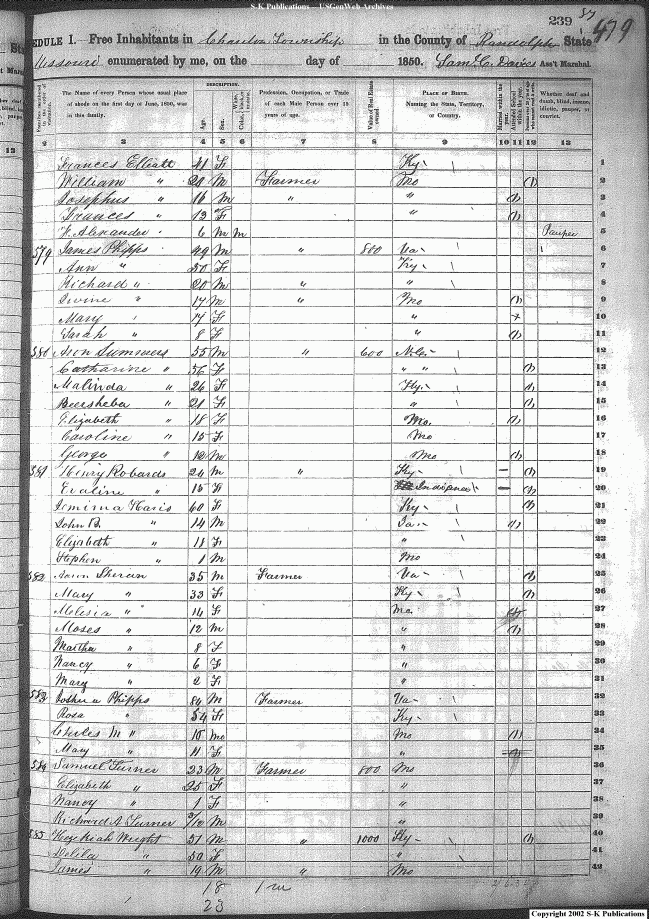 S-K Publications — USGenWeb Archives
239
479
EDULE I. Free Inhabitants in Chariton Township in the County of Randolph State
Missouri enumerated by me, on the day of 1850. Saml C. Davis Ass't Marshal.
The Name of every Person whose usual place of abode on the first day of June, 1850, was in this family.
DESCRIPTION.
Age.
Sex.
Profession, Occupation, or Trade of each Male Person over 15 years of age.
Value of Real Estate owned.
PLACE OF BIRTH. Naming the State, Territory, or Country.
Married within the year.
Attended School within the year.
Whether deaf and dumb, blind, insane, idiotic, pauper, or convict.
3 4 5 6 7 8 9 10 11 12 13
Frances Elliott 41 F Ky 1
William " 20 M Farmer Mo 2
Josephus " 16 M " " 3
Frances " 13 F " 4
W. Alexander " 6 M M Pauper 5
579 James Phipps 49 M " 800 Va 6
Ann " 50 F Ky 7
Richard " 20 M " " 8
Irvine " 17 M " Mo 9
Mary " 14 F " 10
Sarah " 8 F " 11
580 Aron Summers 55 M " 600 12
Catharine " 56 F " " 13
Malinda " 26 F Ky 14
Beersheba " 21 F " 15
Elizabeth " 18 F Mo. 16
Caroline " 15 F Mo 17
George " 12 M Mo 18
581 Henry Robards 24 M " Ky 19
Evaline " 15 F Indiana 20
Jemima Haris 60 F Ky 21
John B. " 14 M 22
Elizabeth " 11 F " 23
Stephen " 1 M Mo 24
582 Aaron 35 M Farmer Va 25
Mary " 33 F Ky 26
" 14 F Mo. 27
Moses " 12 M " 28
Martha " 8 F " 29
Nancy " 6 F " 30
Mary " 2 F " 31
583 Joshua Phipps M Farmer Va 32
Rosa " 54 F Ky 33
Charles M " 15 Mo 34
Mary " 11 F " 35
584 Samuel Turner 23 M Farmer 800 Mo 36
Elizabeth " 25 F " 37
Nancy " 1 F " 38
Richard A Turner M " 39
585 Hezekiah Wright 51 M " 1000 Ky 40
Delila " 50 F " 41
James " 19 M " Mo 42
18 1 m
23
Copyright 2002 S-K Publications